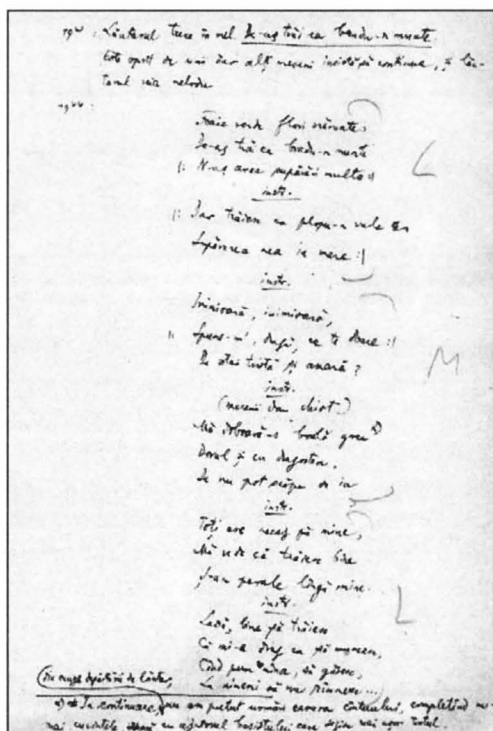 19ᵘ : Lăutarul trece în vel De-aș trăi ca bradu-n munte
este oprit de unii dar alți meseni insistă să continue, și lău-
tarul reia melodia
19⁴⁴ :
Foaie verde flori mărunte
De-aș trăi ca bradu-n munte
|: N-aș avea supărări multe :|
instr.
|: Dar trăiesc ca plopu-n vale
Supărarea mea-i mare :|
instr.
Inimioară, inimioară,
|: Spune-mi dragă, ce te doare :|
De stai tristă și amară?
instr.
(mesenii dau chiot)
Mă doboară-o boală grea
Dorul și cu dragostea
De nu pot scăpa de ea
instr.
Toți au necaz pă mine,
Mă văd că trăiesc bine
Ș-am parale lângă mine.
instr.
Lasă, lume, să trăiesc
Că mi-e drag ca să muncesc,
Când oi să găsesc,
La nimeni să nu
(din cauza depărtării de lăutar,
x) În continuare, nu am putut urmări cântecului, completând nu-
mai cuvintele cu ajutorul basistului care mai ușor textul.